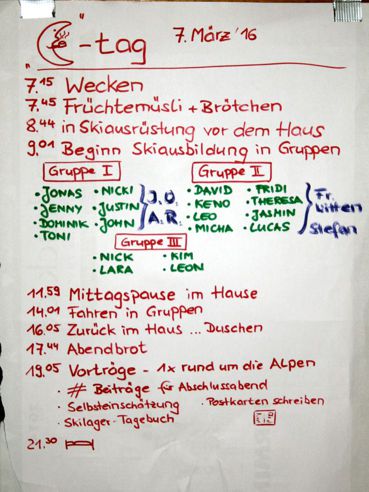 "-tag" 7. März '16
7.15 Wecken
7.45 Früchtemüsli + Brötchen
8.44 in Skiausrüstung vor dem Haus
9.01 Beginn Skiausbildung in Gruppen
Gruppe I
• JONAS • NICKI
• JENNY • JUSTIN
• DOMINIK • JOHN
• TONI
J.O.
A.R.
Gruppe II
• DAVID • FRIDI
• KENO • THERESA
• LEO • JASMIN
• MICHA • LUCAS
Fr.
Witten
Stefan
Gruppe III
• NICK • KIM
• LARA • LEON
11.59 Mittagspause im Hause
14.01 Fahren in Gruppen
16.05 Zurück im Haus ... Duschen
17.44 Abendbrot
19.05 Vorträge - 1x rund um die Alpen
• # Beiträge für Abschlussabend
• Selbsteinschätzung • Postkarten schreiben
• Skilager-Tagebuch
21.30